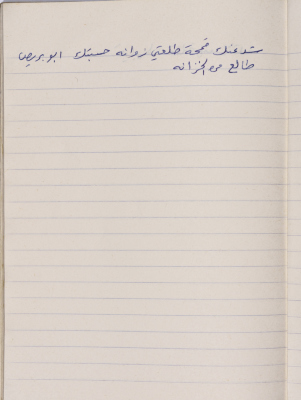 شدعنك قمحة طلعتي زوانه حسبتك ابو بريص
طالع من الخزانه